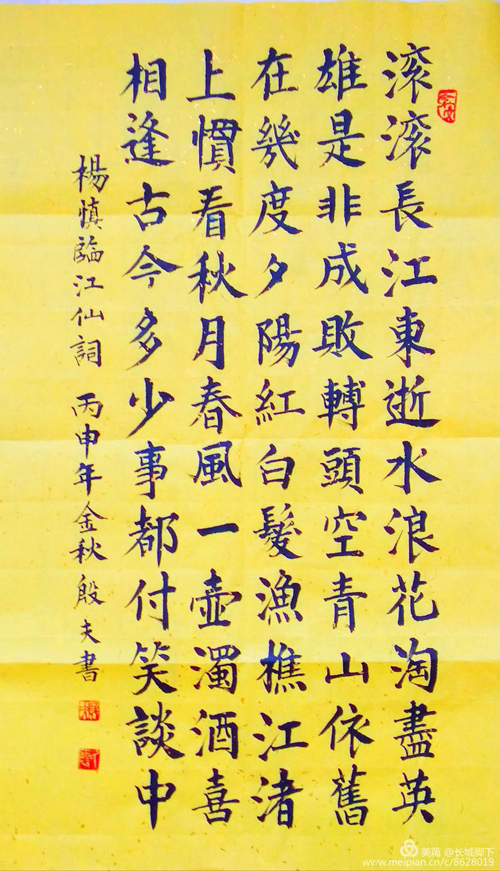 滚滚長江東逝水浪花淘盡英
雄是非成敗轉頭空青山依舊
在幾度夕陽紅白髮漁樵江渚
上慣看秋月春風一壺濁酒喜
相逢古今多少事都付笑談中
楊慎臨江仙詞 丙申年金秋殷夫書
美篇 @长城脚下
www.meipian.cn/c/8628019